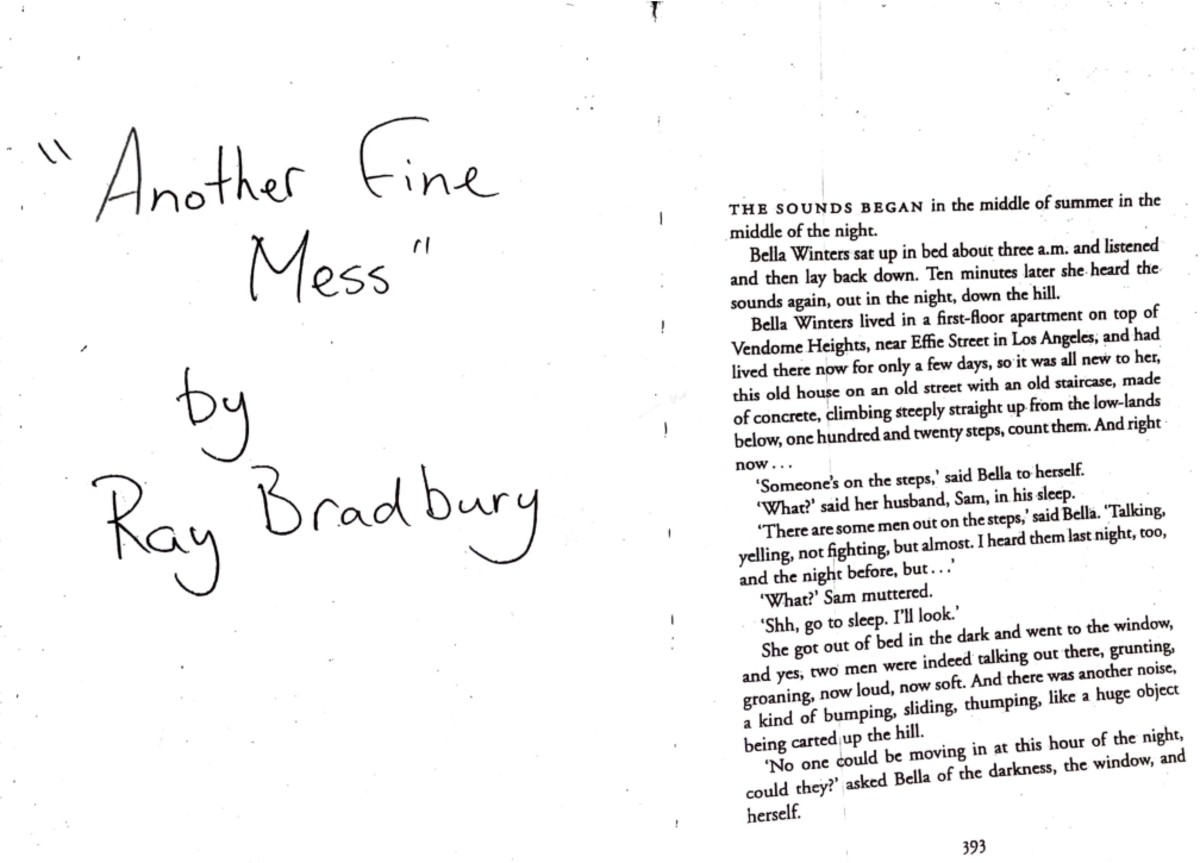 "Another Fine
Mess"
by
Ray Bradbury
THE SOUNDS BEGAN in the middle of summer in the
middle of the night.
Bella Winters sat up in bed about three a.m. and listened
and then lay back down. Ten minutes later she heard the
sounds again, out in the night, down the hill.
Bella Winters lived in a first-floor apartment on top of
Vendome Heights, near Effie Street in Los Angeles, and had
lived there now for only a few days, so it was all new to her,
this old house on an old street with an old staircase, made
of concrete, climbing steeply straight up from the low-lands
below, one hundred and twenty steps, count them. And right
now...
‘Someone's on the steps,’ said Bella to herself.
‘What?’ said her husband, Sam, in his sleep.
‘There are some men out on the steps,’ said Bella. ‘Talking,
yelling, not fighting, but almost. I heard them last night, too,
and the night before, but...’
‘What?’ Sam muttered.
‘Shh, go to sleep. I'll look.’
She got out of bed in the dark and went to the window,
and yes, two men were indeed talking out there, grunting,
groaning, now loud, now soft. And there was another noise,
a kind of bumping, sliding, thumping, like a huge object
being carted up the hill.
‘No one could be moving in at this hour of the night,
could they?’ asked Bella of the darkness, the window, and
herself.
393